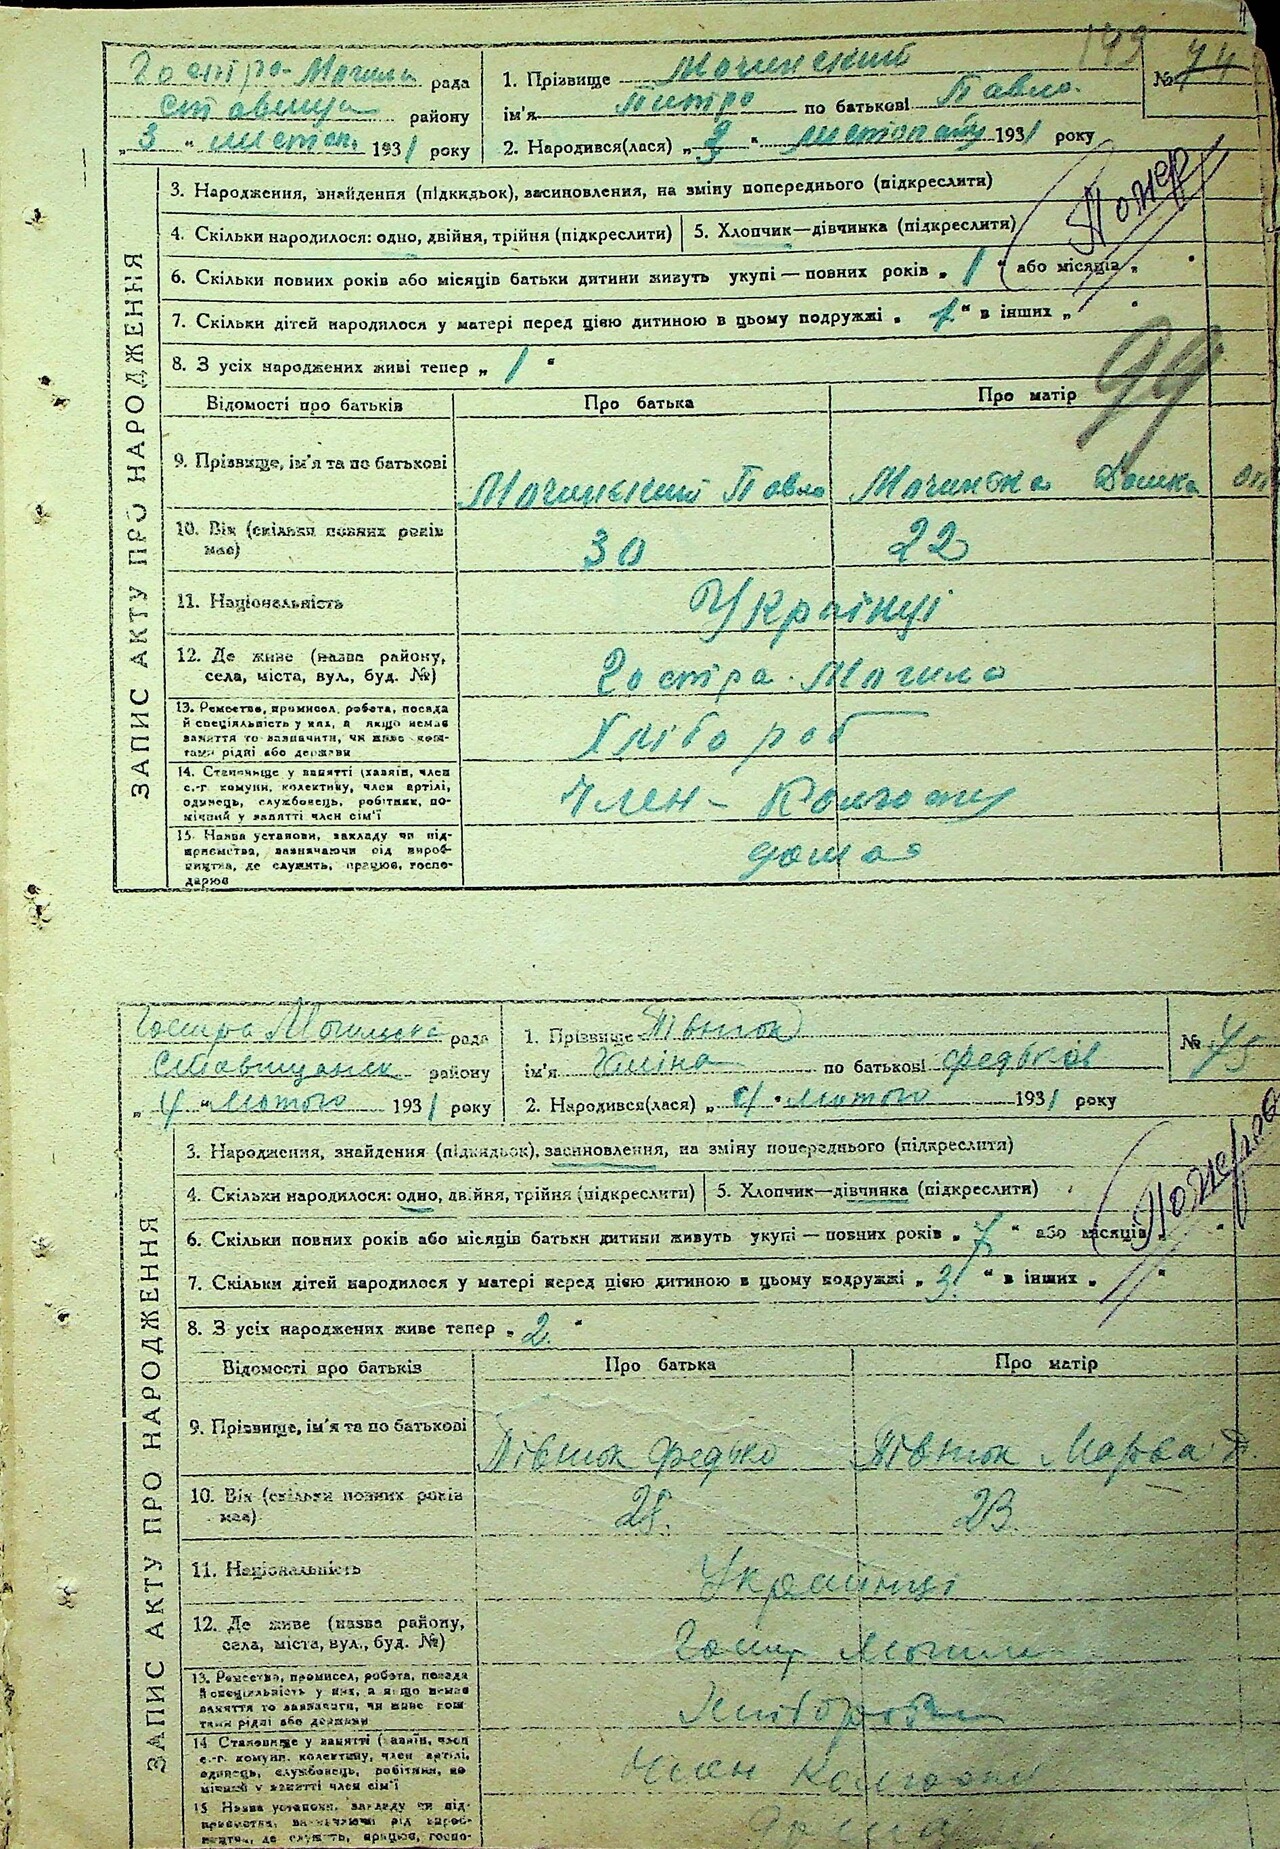 149
Гостро-Могила рада
1. Прізвище Мочинский
№ 74
Ставище району
ім'я Питро по батькові Павло.
„ 3 " листоп. 1931 року
2. Народився(лася) „ 3 " листопаду 1931 року
Помер
ЗАПИС АКТУ ПРО НАРОДЖЕННЯ
3. Народження, знайдення (підкидьок), засиновлення, на зміну попереднього (підкреслити)
4. Скільки народилося: одно, двійня, трійня (підкреслити)
5. Хлопчик—дівчинка (підкреслити)
6. Скільки повних років або місяців батьки дитини живуть укупі — повних років „ 1 " або місяців „ "
7. Скільки дітей народилося у матері перед цією дитиною в цьому подружжі „ 1. " в інших „ "
8. З усіх народжених живі тепер „ 1 "
99
Відомості про батьків
Про батька
Про матір
9. Прізвище, ім'я та по батькові
Мочинский Павло
Мочинска Дошка
10. Вік (скільки повних років
має)
30
22
11. Національність
Українці
12. Де живе (назва району,
села, міста, вул., буд. №)
Гостра. Могила
13. Ремество, промисел, робота, посада
й спеціяльність у них, а якщо немає
заняття то зазначити, чи живе кош-
тами рідні або держави
Хлібороб
14. Становище у занятті (хазяїн, член
с.-г. комуни, колективу, член артілі,
одинець, службовець, робітник, по-
мічний у занятті член сім'ї
Член - Колгоспу
15. Назва установи, закладу чи під-
приємства, зазначаючи рід вироб-
ництва, де служить, працює, госпо-
дарює
дома
Гостра Могилска рада
1. Прізвище Півнюк
№ 75
Ставищанск району
ім'я по батькові Федьков
„ 4 " Лютого 1931 року
2. Народився(лася) „ 4 " лютого 1931 року
Померла
ЗАПИС АКТУ ПРО НАРОДЖЕННЯ
3. Народження, знайдення (підкидьок), засиновлення, на зміну попереднього (підкреслити)
4. Скільки народилося: одно, двійня, трійня (підкреслити)
5. Хлопчик—дівчинка (підкреслити)
6. Скільки повних років або місяців батьки дитини живуть укупі — повних років „ 7. " або місяців „ "
7. Скільки дітей народилося у матері перед цією дитиною в цьому подружжі „ 3. " в інших „ "
8. З усіх народжених живе тепер „ 2. "
Відомості про батьків
Про батька
Про матір
9. Прізвище, ім'я та по батькові
Півнюк Федько
Півнюк Марва
10. Вік (скільки повних років
має)
25.
23.
11. Національність
Українці
12. Де живе (назва району,
села, міста, вул., буд. №)
Гостр Могили
13. Ремество, промисел, робота, посада
й спеціяльність у них, а якщо немає
заняття то зазначити, чи живе кош-
тами рідні або держави
14 Становище у занятті (хазяїн, член
с.-г. комуни, колективу, член артілі,
одинець, службовець, робітник, по-
мічний у занятті член сім'ї
Член Колгоспу
15 Назва установи, закладу чи під-
приємства, зазначаючи рід вироб-
ництва, де служить, працює, госпо-